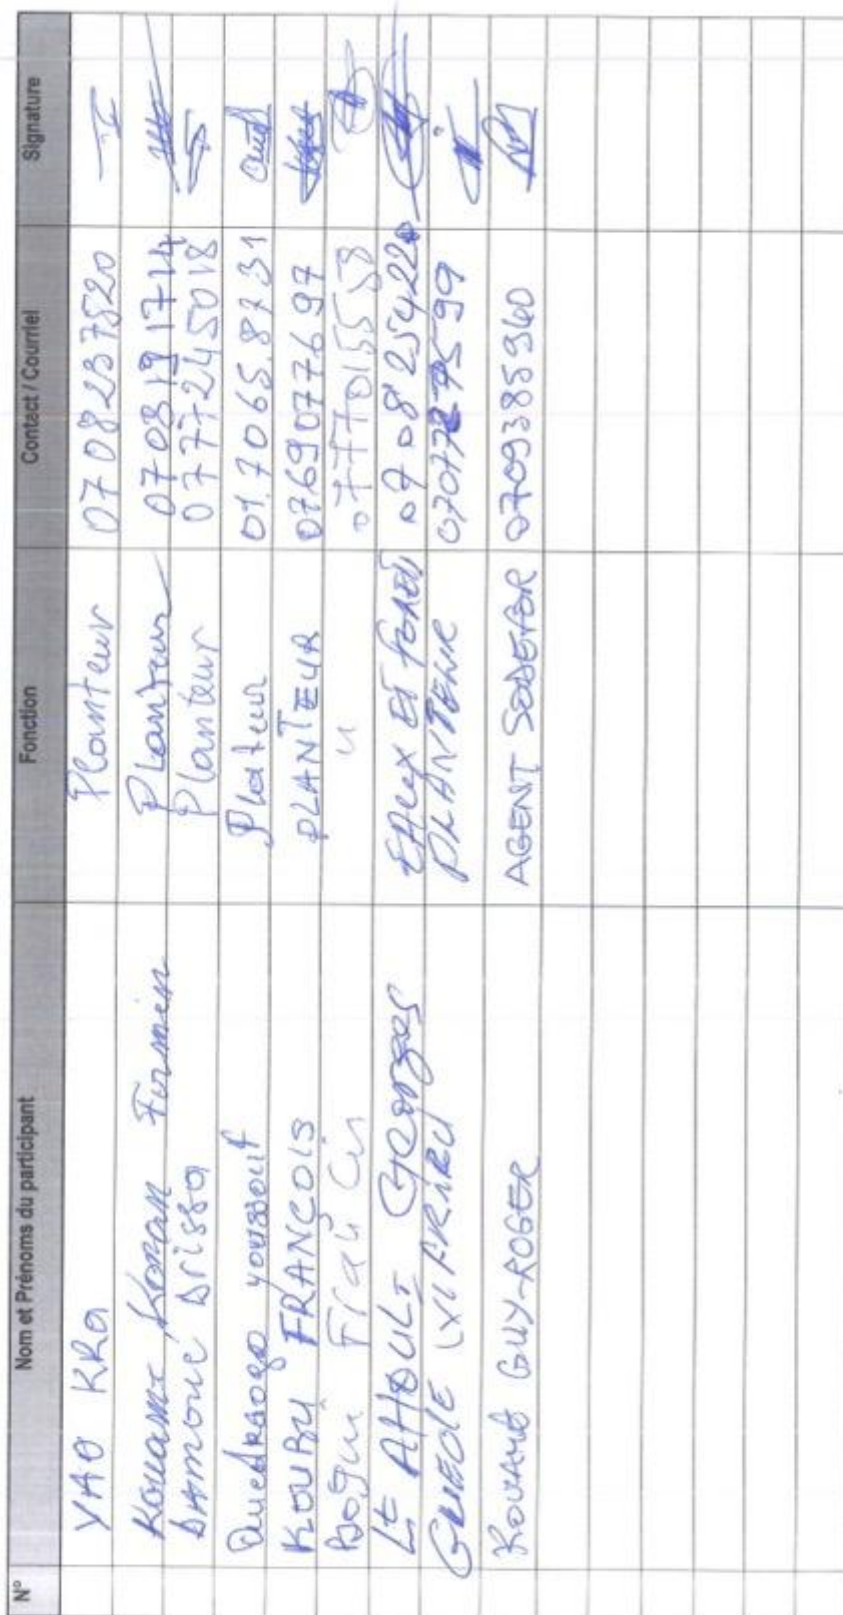 N° Nom et Prénoms du participant Fonction Contact / Courriel Signature
YAO KRA Planteur 07 08 28 7520
Kouamé Konan Firmin Planteur 07 08 19 17 14
DAMOUE Drissa Planteur 07 77 24 50 18
Ouedraogo youssouf Plateur 01.70 65.87 31
KOUBY FRANÇOIS PLANTEUR 0769077697
Bogui Fran Cis " 0777015558
Lt AHOULI Georges EAUX ET forêts 07 08 254220
GUEDE PLANTEUR
KOUAMÉ GUY-ROGER AGENT SODEFOR 0709385960